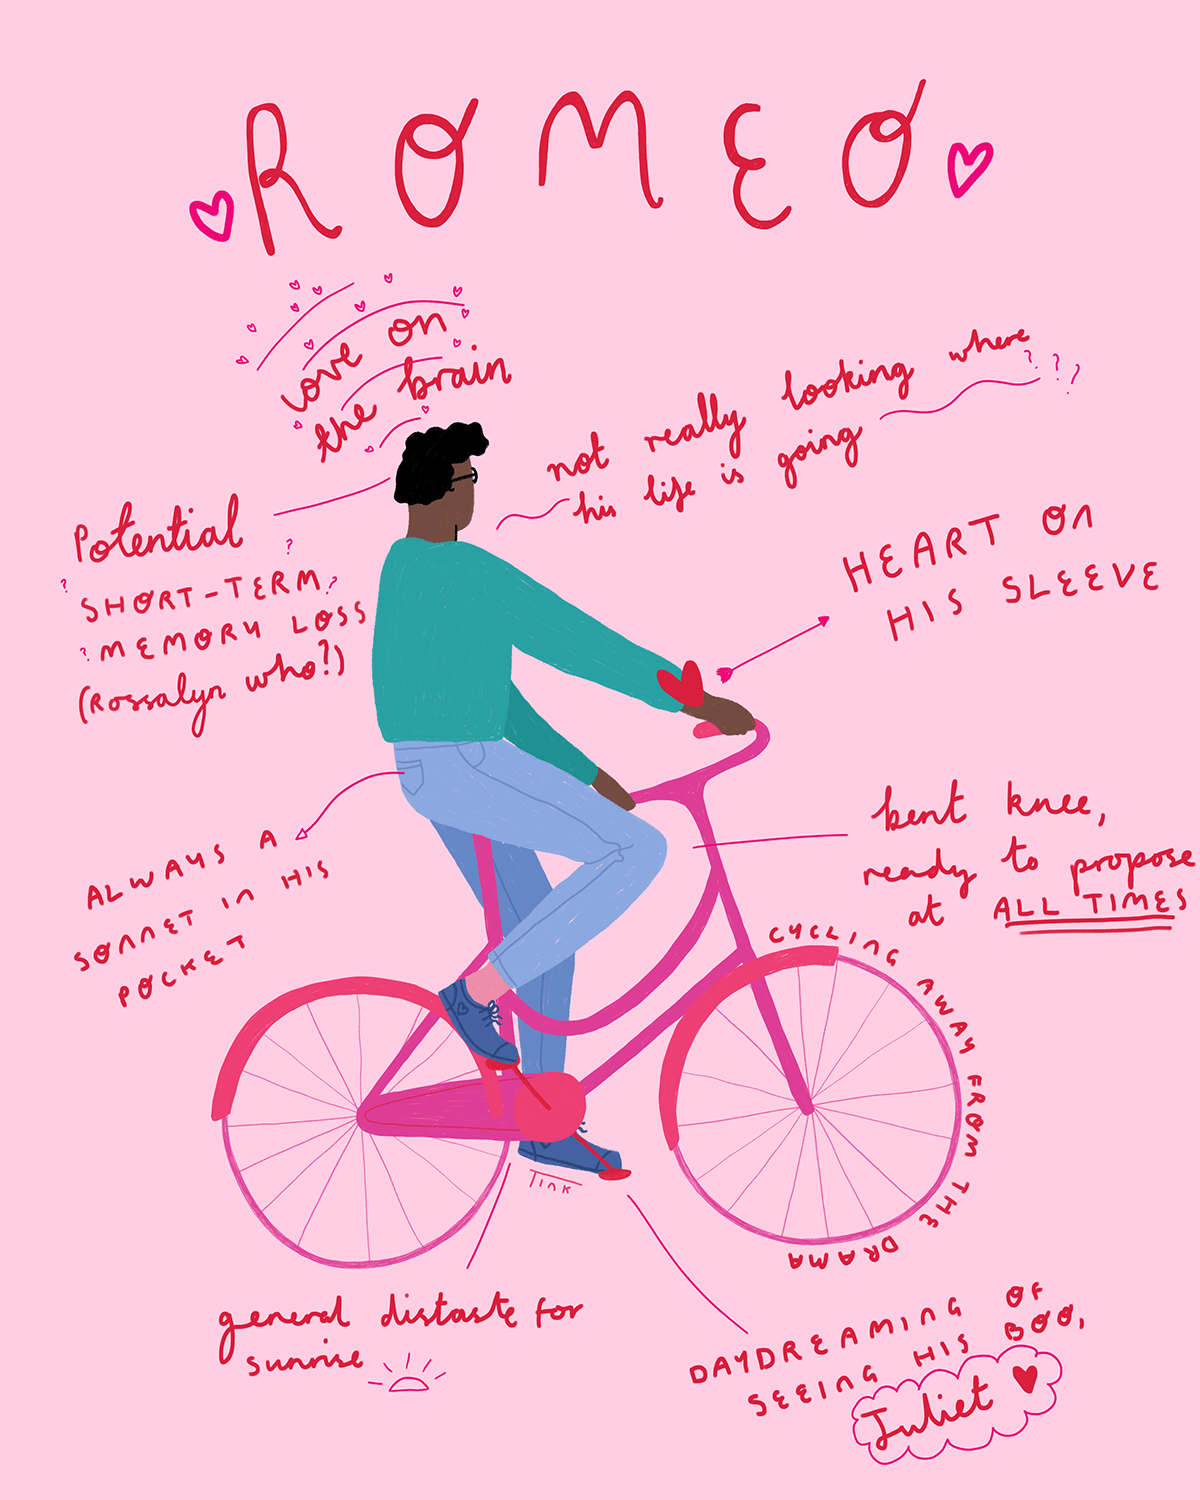 ROMEO
love on
the brain
not really looking where
his life is going
???
Potential
SHORT-TERM
MEMORY LOSS
(Rossalyn who?)
? ? ? ?
HEART On
HIS SLEEVE
ALWAYS A
SOnnET In HIS
POCKET
bent knee,
ready to propose
at ALL TIMES
CYCLInG AWAY FROM THE DRAMA
Tink
general distaste for
sunrise
DAYDREAMInG OF
SEEInG HIS BOO,
Juliet